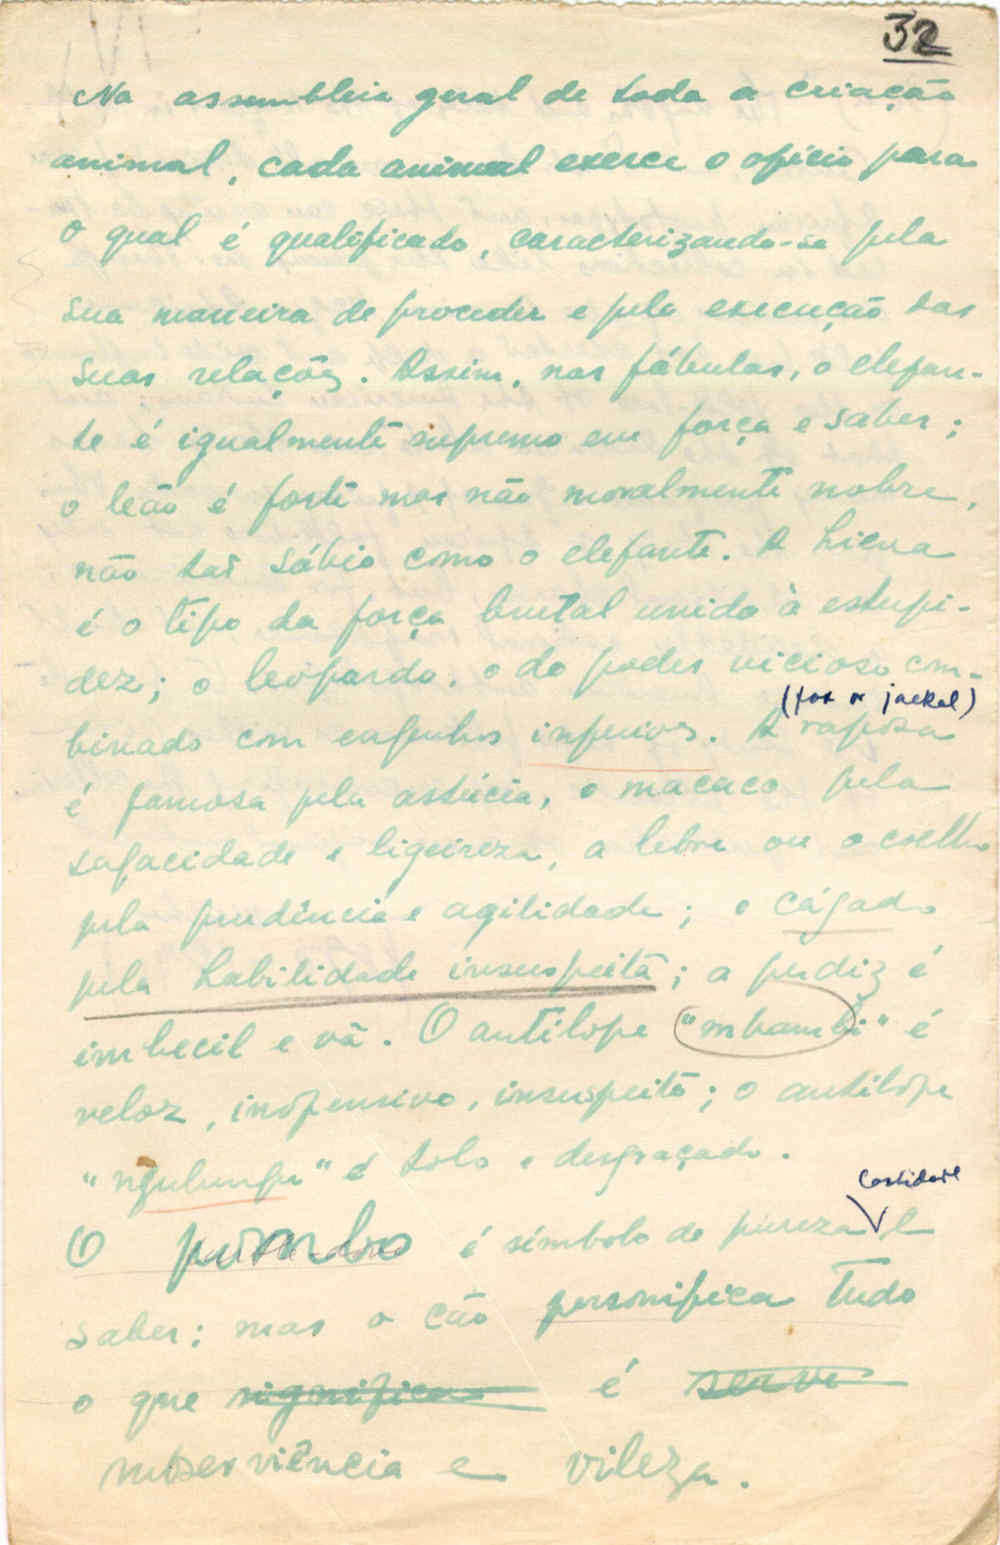 32
Na assembleia geral de toda a criação
animal, cada animal exerce o ofício para
o qual é qualificado, caracterizando-se pela
sua maneira de proceder e pela execução das
suas relações. Assim, nas fábulas, o elefan-
te é igualmente supremo em força e saber;
o leão é forte mas não moralmente nobre,
não tão sábio como o elefante. A hiena
é o tipo da força brutal unido à estupi-
dez; o leopardo, o do poder vicioso com-
(fox or jackal)
binado com engenhos inferiores. A raposa
é famosa pela astúcia, o macaco pela
sagacidade e ligeireza, a lebre ou o coelho
pela prudência e agilidade; o cágado
pela habilidade insuspeita; a perdiz é
imbecil e vã. O antílope "mbambi" é
veloz, inofensivo, insuspeito; o antílope
"ngulungu" é tolo e desgraçado.
castidade
O pombo é símbolo de pureza e
saber; mas o cão personifica tudo
o que significa é serve
subserviência e vileza.